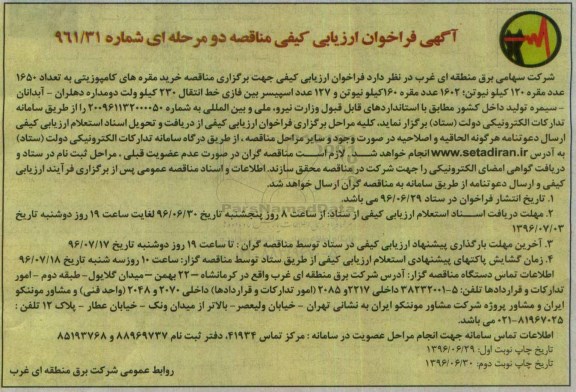 آگهی فراخوان ارزیابی کیفی مناقصه دو مرحله ای شماره ۹۶۱/۳۱
شرکت سهامی برق منطقه ای غرب در نظر دارد فراخوان ارزیابی کیفی جهت برگزاری مناقصه خرید مقره های کامپوزیتی به تعداد ۱۶۵۰
عدد مقره ۱۲۰ کیلو نیوتن؛ ۱۶۰۲ عدد مقره ۱۶۰کیلو نیوتن و ۱۲۷ عدد اسپیسر بین فازی خط انتقال ۲۳۰ کیلو ولت دومداره دهلران - آبدانان
- سیمره تولید داخل کشور مطابق با استانداردهای قابل قبول وزارت نیرو، ملی و بین المللی به شماره ۲۰۰۹۶۱۱۳۲۰۰۰۰۵۰ را از طریق سامانه
تدارکات الکترونیکی دولت (ستاد) برگزار نماید، کلیه مراحل برگزاری فراخوان ارزیابی کیفی از دریافت و تحویل اسناد استعلام ارزیابی کیفی
ارسال دعوتنامه هرگونه الحاقیه و اصلاحیه در صورت وجود و سایر مراحل مناقصه ، از طریق درگاه سامانه تدارکات الکترونیکی دولت (ستاد)
به آدرس www.setadiran.ir انجام خواهد شد. لازم است مناقصه گران در صورت عدم عضویت قبلی ، مراحل ثبت نام در ستاد و
دریافت گواهی امضای الکترونیکی را جهت شرکت در مناقصه محقق سازند. اطلاعات و اسناد مناقصه عمومی پس از برگزاری فرآیند ارزیابی
کیفی و ارسال دعوتنامه از طریق سامانه به مناقصه گران ارسال خواهد شد.
۱. تاریخ انتشار فراخوان در ستاد ۹۶/۰۶/۲۹ می باشد.
۲. مهلت دریافت اسناد استعلام ارزیابی کیفی از ستاد: از ساعت ۸ روز پنجشنبه تاریخ ۹۶/۰۶/۳۰ لغایت ساعت ۱۹ روز دوشنبه تاریخ
۱۳۹۶/۰۷/۰۳
۳. آخرین مهلت بارگذاری پیشنهاد ارزیابی کیفی در ستاد توسط مناقصه گران : تا ساعت ۱۹ روز دوشنبه تاریخ ۹۶/۰۷/۱۷
۴. زمان گشایش پاکتهای پیشنهادی استعلام ارزیابی کیفی از طریق ستاد توسط مناقصه گزار: ساعت ۱۰ روزسه شنبه تاریخ ۹۶/۰۷/۱۸
اطلاعات تماس دستگاه مناقصه گزار: آدرس شرکت برق منطقه ای غرب واقع در کرمانشاه -۲۲ بهمن -میدان گلایول- طبقه دوم - امور
تدارکات و قراردادها تلفن: ۵-۳۸۲۳۲۰۰۱ داخلی ۲۲۱۷ و ۲۰۸۵ (امور تدارکات و قراردادها) داخلی ۲۰۷۰ و ۲۰۴۸ (واحد فنی) و مشاور موننکو
ایران و مشاور پروژه شرکت مشاور موننکو ایران به نشانی تهران - خیابان ولیعصر- بالاتر از میدان ونک - خیابان عطار - پلاک ۱۲ تلفن :
۰۲۱-۸۱۹۶۷۰۲۵ می باشد.
اطلاعات تماس سامانه جهت انجام مراحل عضویت در سامانه : مرکز تماس ۴۱۹۳۴، دفتر ثبت نام ۸۸۹۶۹۷۳۷ و ۸۵۱۹۳۷۶۸
تاریخ چاپ نوبت اول: ۱۳۹۶/۰۶/۲۹
تاریخ چاپ نوبت دوم: ۱۳۹۶/۰۶/۳۰
روابط عمومی شرکت برق منطقه ای غرب